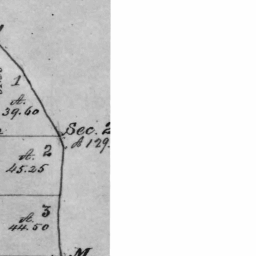 1
A.
39.60
Sec. 2
A 129.
2
A.
45.25
3
A.
44.50
M